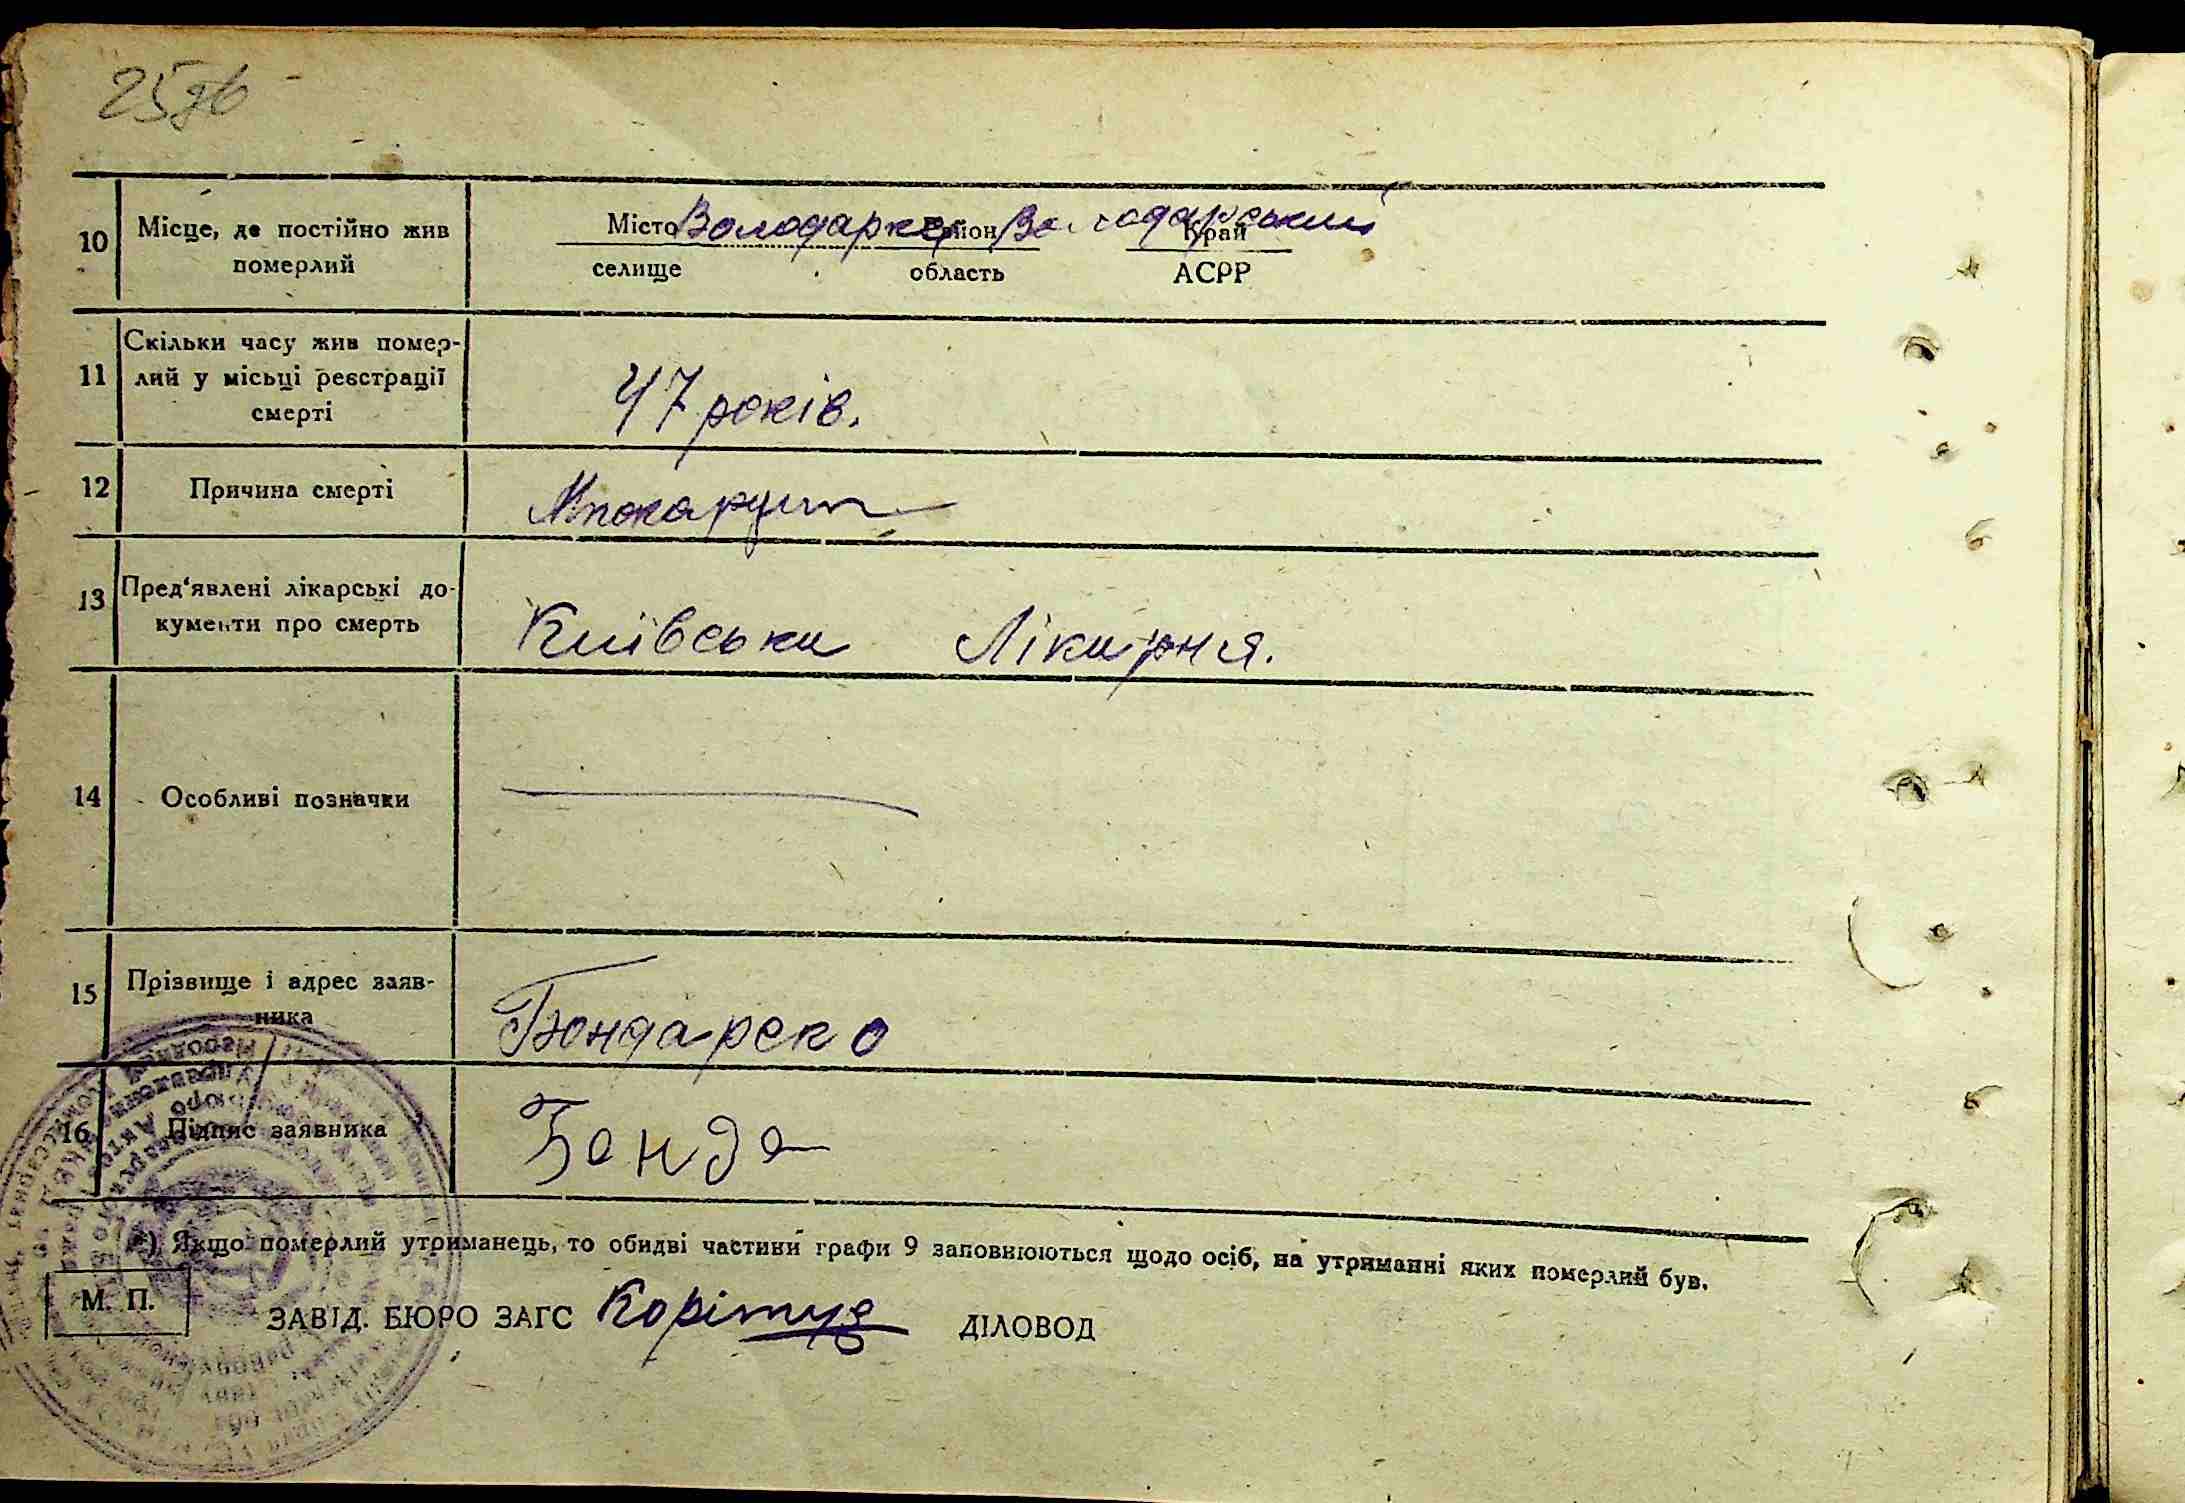 25зв
10 Місце, де постійно жив
померлий
Місто Володарка район Володарський Край
селище область АСРР
11 Скільки часу жив помер-
лий у місьці реєстрації
смерті
47 років.
12 Причина смерті
13 Пред'явлені лікарські до-
кументи про смерть
Київська Лікарня.
14 Особливі позначки
15 Прізвище і адрес заяв-
ника
Бондареко
16 Підпис заявника
Бонда
*) Якщо померлий утриманець, то обидві частини графи 9 заповнюються щодо осіб, на утриманні яких померлий був.
М. П.
ЗАВІД. БЮРО ЗАГС ДІЛОВОД